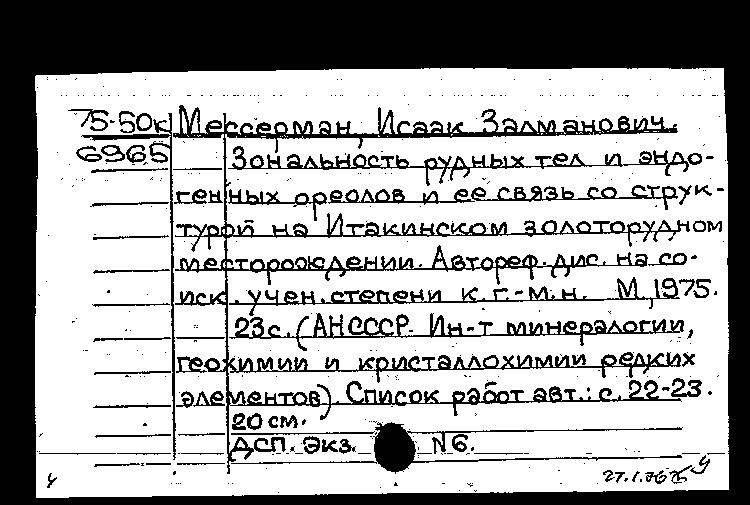 75-50к Мессерман, Исаак Залманович.
6965 Зональность рудных тел и эндо-
генных ореолов и ее связь со струк-
турой на Итакинском золоторудном
месторождении. Автореф. дис. на со-
иск. учен. степени к.г.-м.н. М, 1975.
23с. (АН СССР. Ин-т минералогии,
геохимии и кристаллохимии редких
элементов). Список работ авт.: с. 22-23.
20 см.
ДСП. Экз. N6.